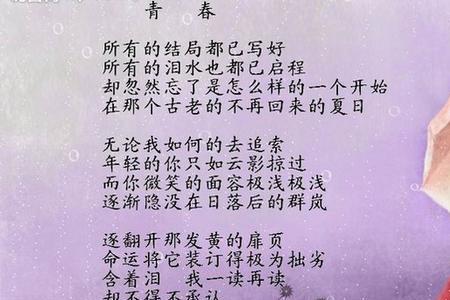 青 春
所有的结局都已写好
所有的泪水也都已启程
却忽然忘了是怎么样的一个开始
在那个古老的不再回来的夏日
无论我如何的去追索
年轻的你只如云影掠过
而你微笑的面容极浅极浅
逐渐隐没在日落后的群岚
逐翻开那发黄的扉页
命运将它装订得极为拙劣
含着泪 我一读再读
却不得不承认